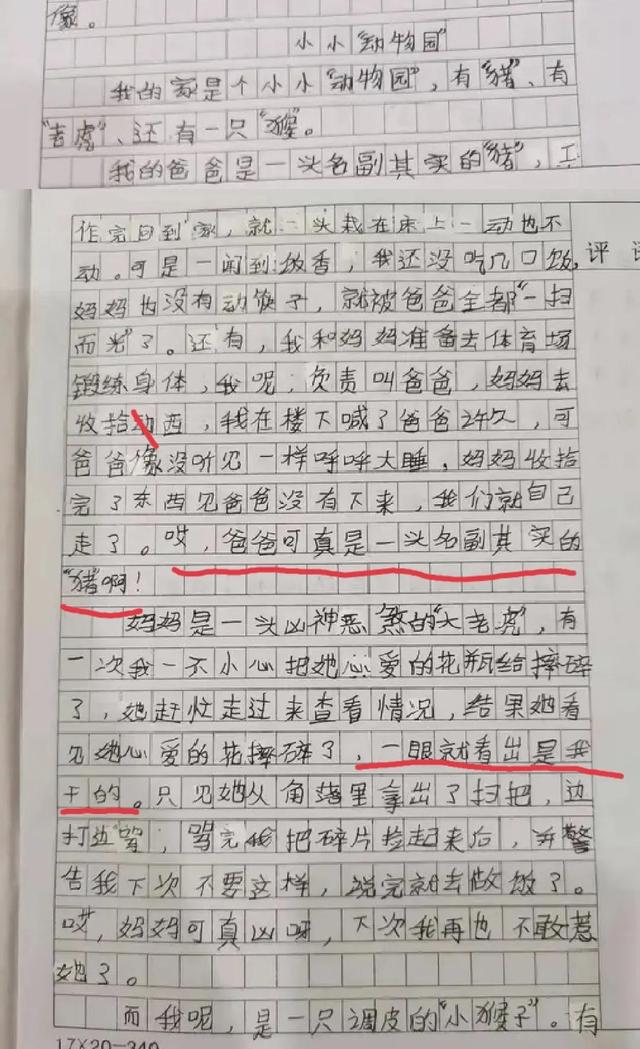 像。
小小“动物园”
我的家是个小小“动物园”，有“猪”、有
“老虎”、还有一只“猴”。
我的爸爸是一头名副其实的“猪”，工
作完回到家，就一头栽在床上一动也不
动。可是一闻到饭香，我还没吃几口饭，
评语
妈妈也没有动筷子，就被爸爸全都“一扫
而光”了。还有，我和妈妈准备去体育场
锻练身体，我呢，负责叫爸爸，妈妈去
收拾动西，我在楼下喊了爸爸许久，可
爸爸像没听见一样呼呼大睡，妈妈收拾
完了东西见爸爸没有下来，我们就自己
走了。哎，爸爸可真是一头名副其实的
“猪”啊！
妈妈是一头凶神恶煞的“大老虎”，有
一次我一不小心把她心爱的花瓶给摔碎
了，她赶忙走过来查看情况，结果她看
见她心爱的花摔碎了，一眼就看出是我
干的。只见她从角落里拿出了扫把，边
打边骂，骂完我把碎片捡起来后，并警
告我下次不要这样，说完就去做饭了。
哎，妈妈可真凶呀，下次我再也不敢惹
她了。
而我呢，是一只调皮的“小猴子”。有
17×20=340